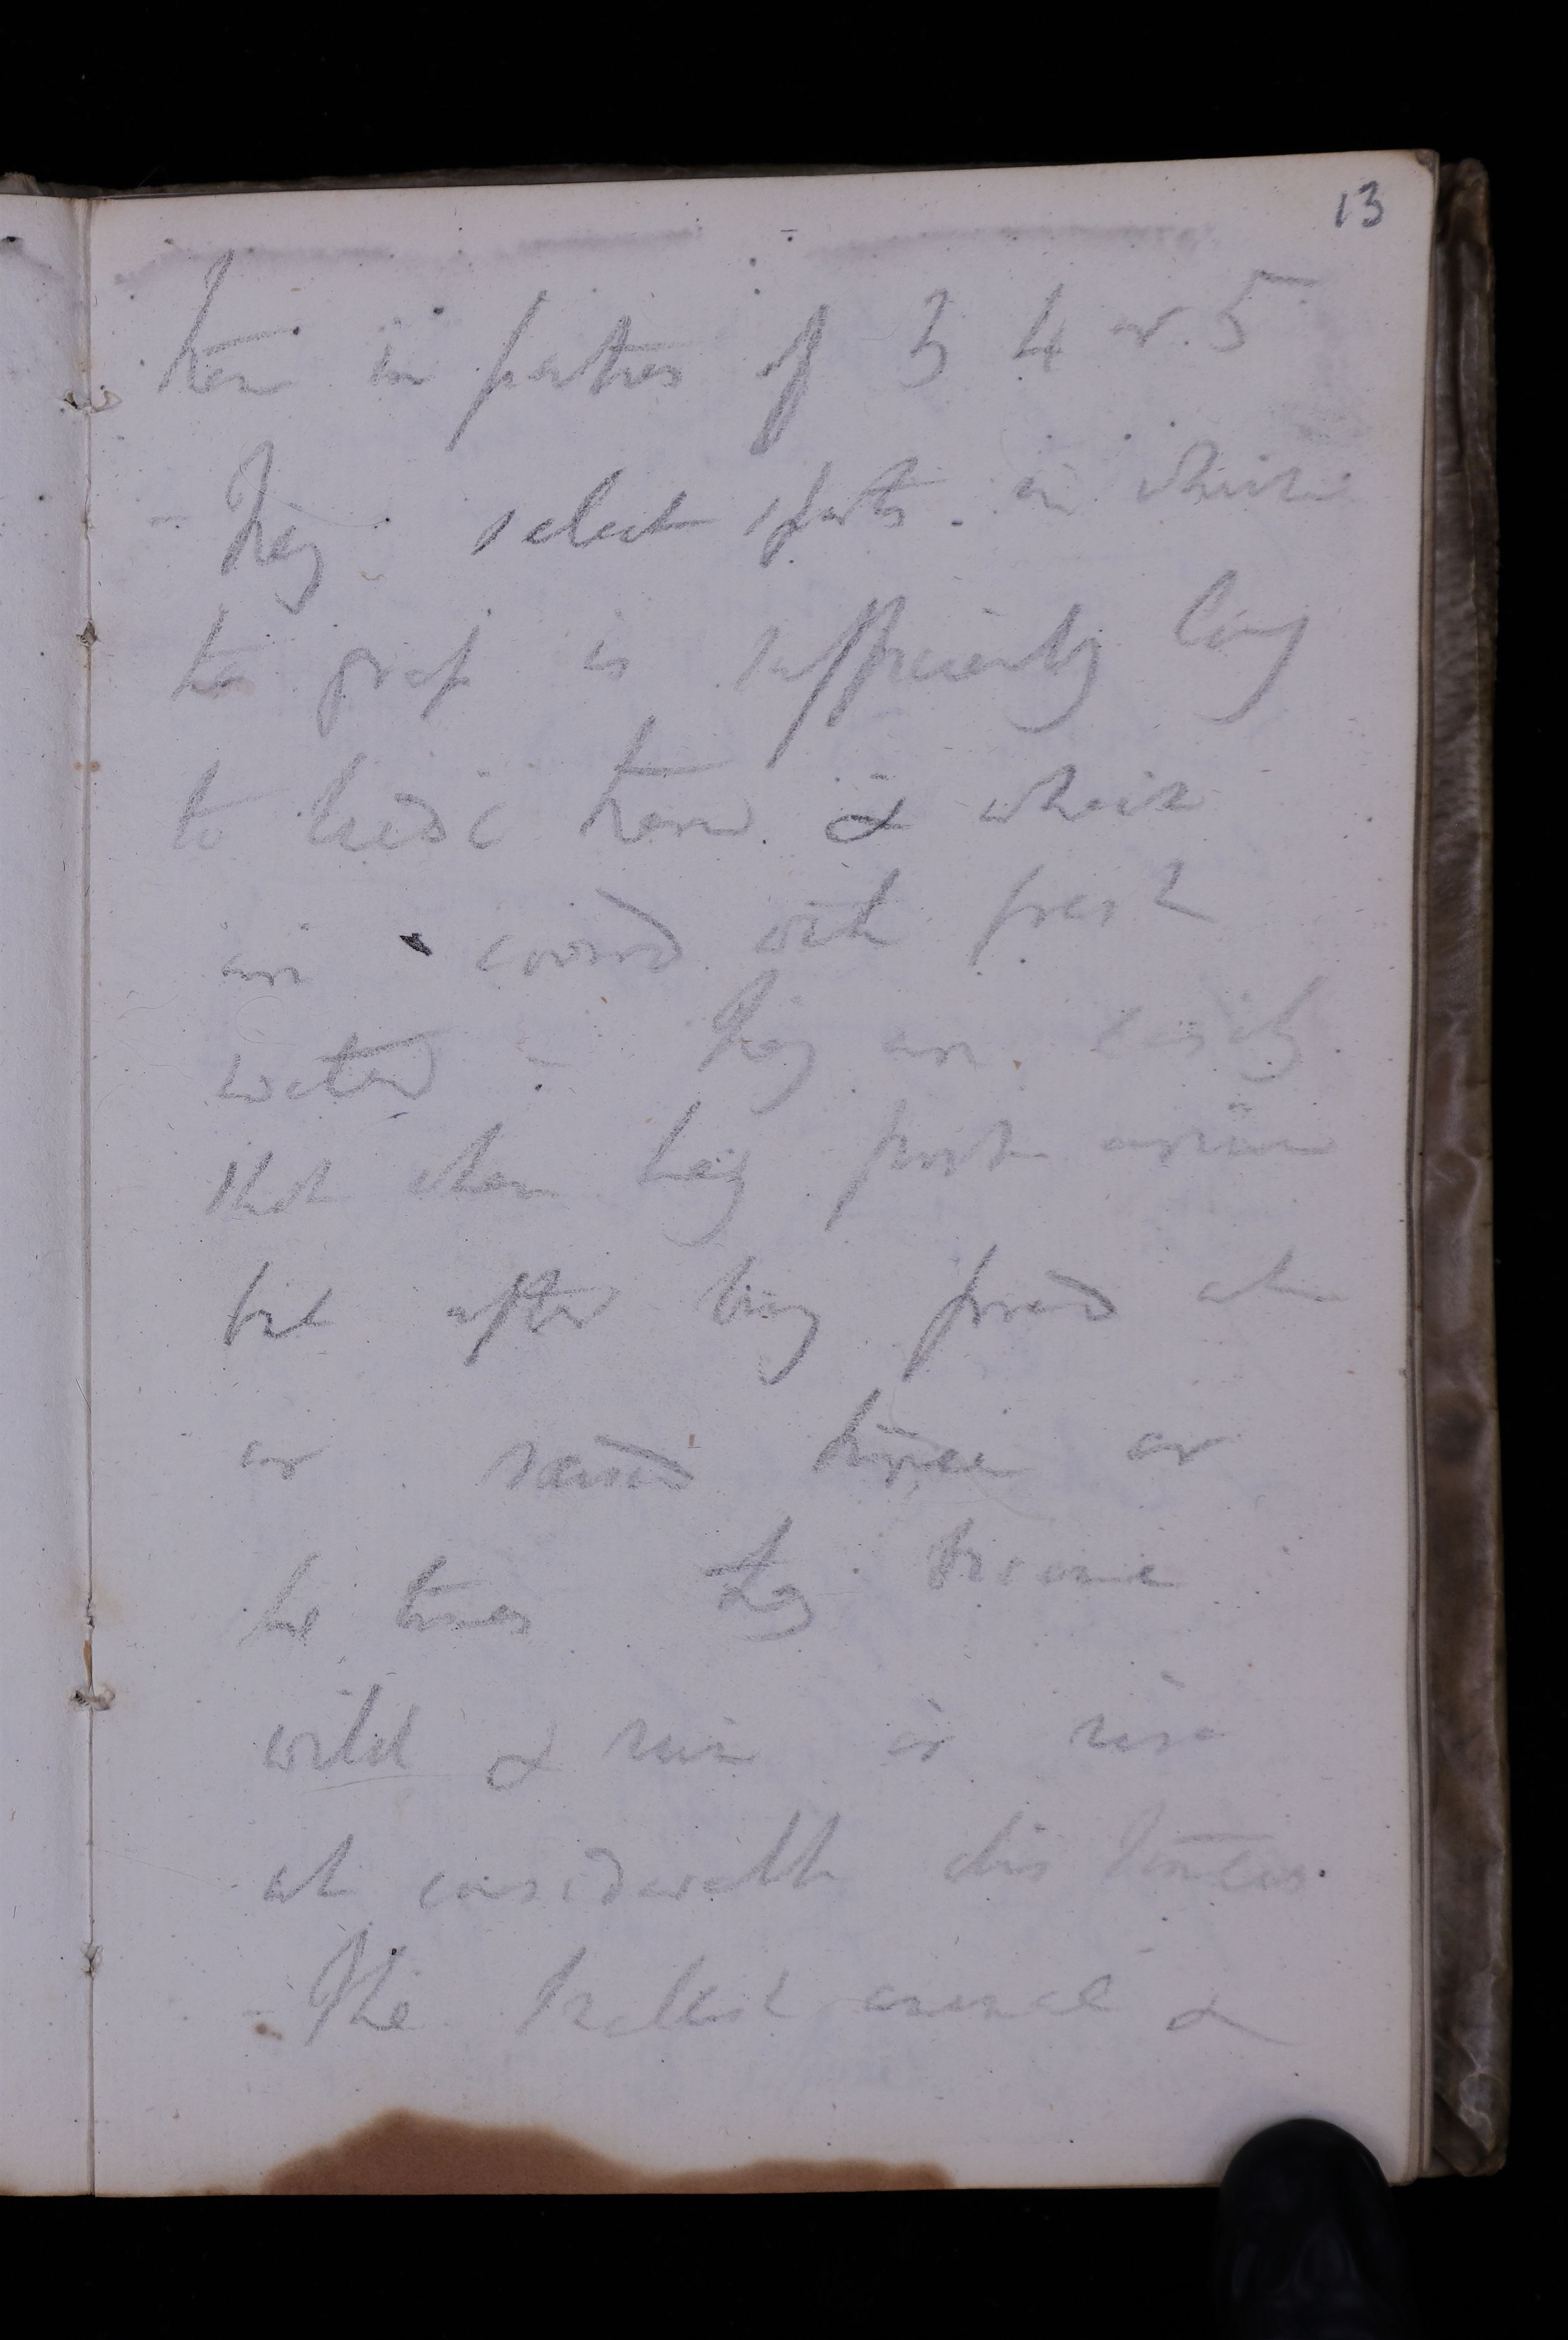 13
them in parties of 3 4 or 5
- They select spots in which
the grass is sufficiently long
to hide them & which
are covered with fresh
water - They are easily
shot when they first arrive
but after being fired at
or raised three or
four times they become
wild & run or rise
at considerable distances.
- The Solitary arrive &